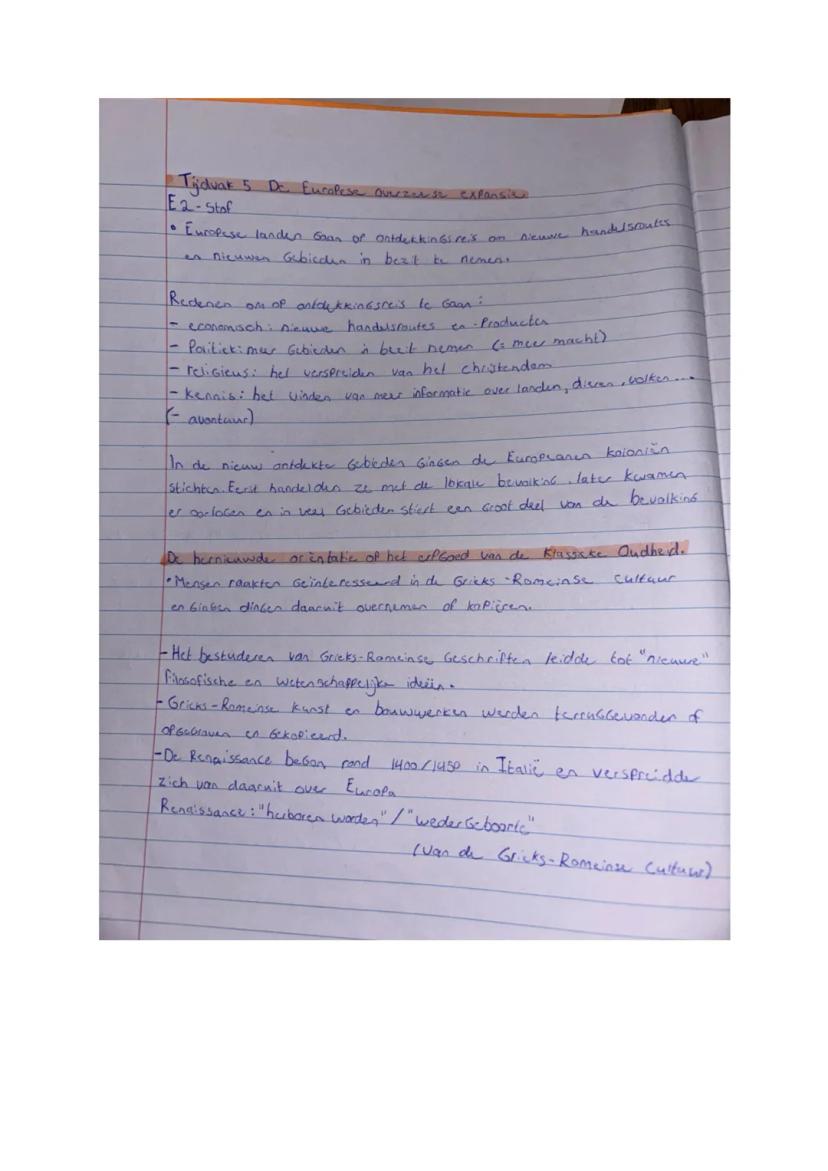 Tijdvak 5 De Europese overzeese expansie
E2-Stof
• Europese landen Gaan op ontdekkingsreis om nieuwe handelsroutes
en nieuwen Gebieden in bezit te nemen.
Redenen om op ontdekkingsreis te Gaan:
- economisch: nieuwe handelsroutes en Producten
- Politiek: meer Gebieden in bezit nemen (= meer macht)
- religieus: het verspreiden van het christendom
- kennis: het vinden van meer informatie over landen, dieren, volken ...
(- avontuur)
In de nieuw ontdekte Gebieden Gingen de Europeanen koloniën
stichten. Eerst handelden ze met de lokale bevolking, later kwamen
er oorlogen en in veel Gebieden stierf een Groot deel van de bevolking
De hernieuwde oriëntatie op het erfGoed van de Klassieke Oudheid.
• Mensen raakten Geïnteresseerd in de Grieks-Romeinse cultuur
en Gingen dingen daaruit overnemen of kopiëren.
- Het bestuderen van Grieks-Romeinse Geschriften leidde tot "nieuwe"
filosofische en wetenschappelijke ideïen.
- Grieks-Romeinse kunst en bouwwerken werden terruGGevonden of
opGeGraven en Gekopieerd.
- De Renaissance beGon rond 1400/1450 in Italië en verspreidde
zich van daaruit over Europa
Renaissance: "herboren worden" / "wederGeboorte"
(van de Grieks-Romeinse Cultuur)